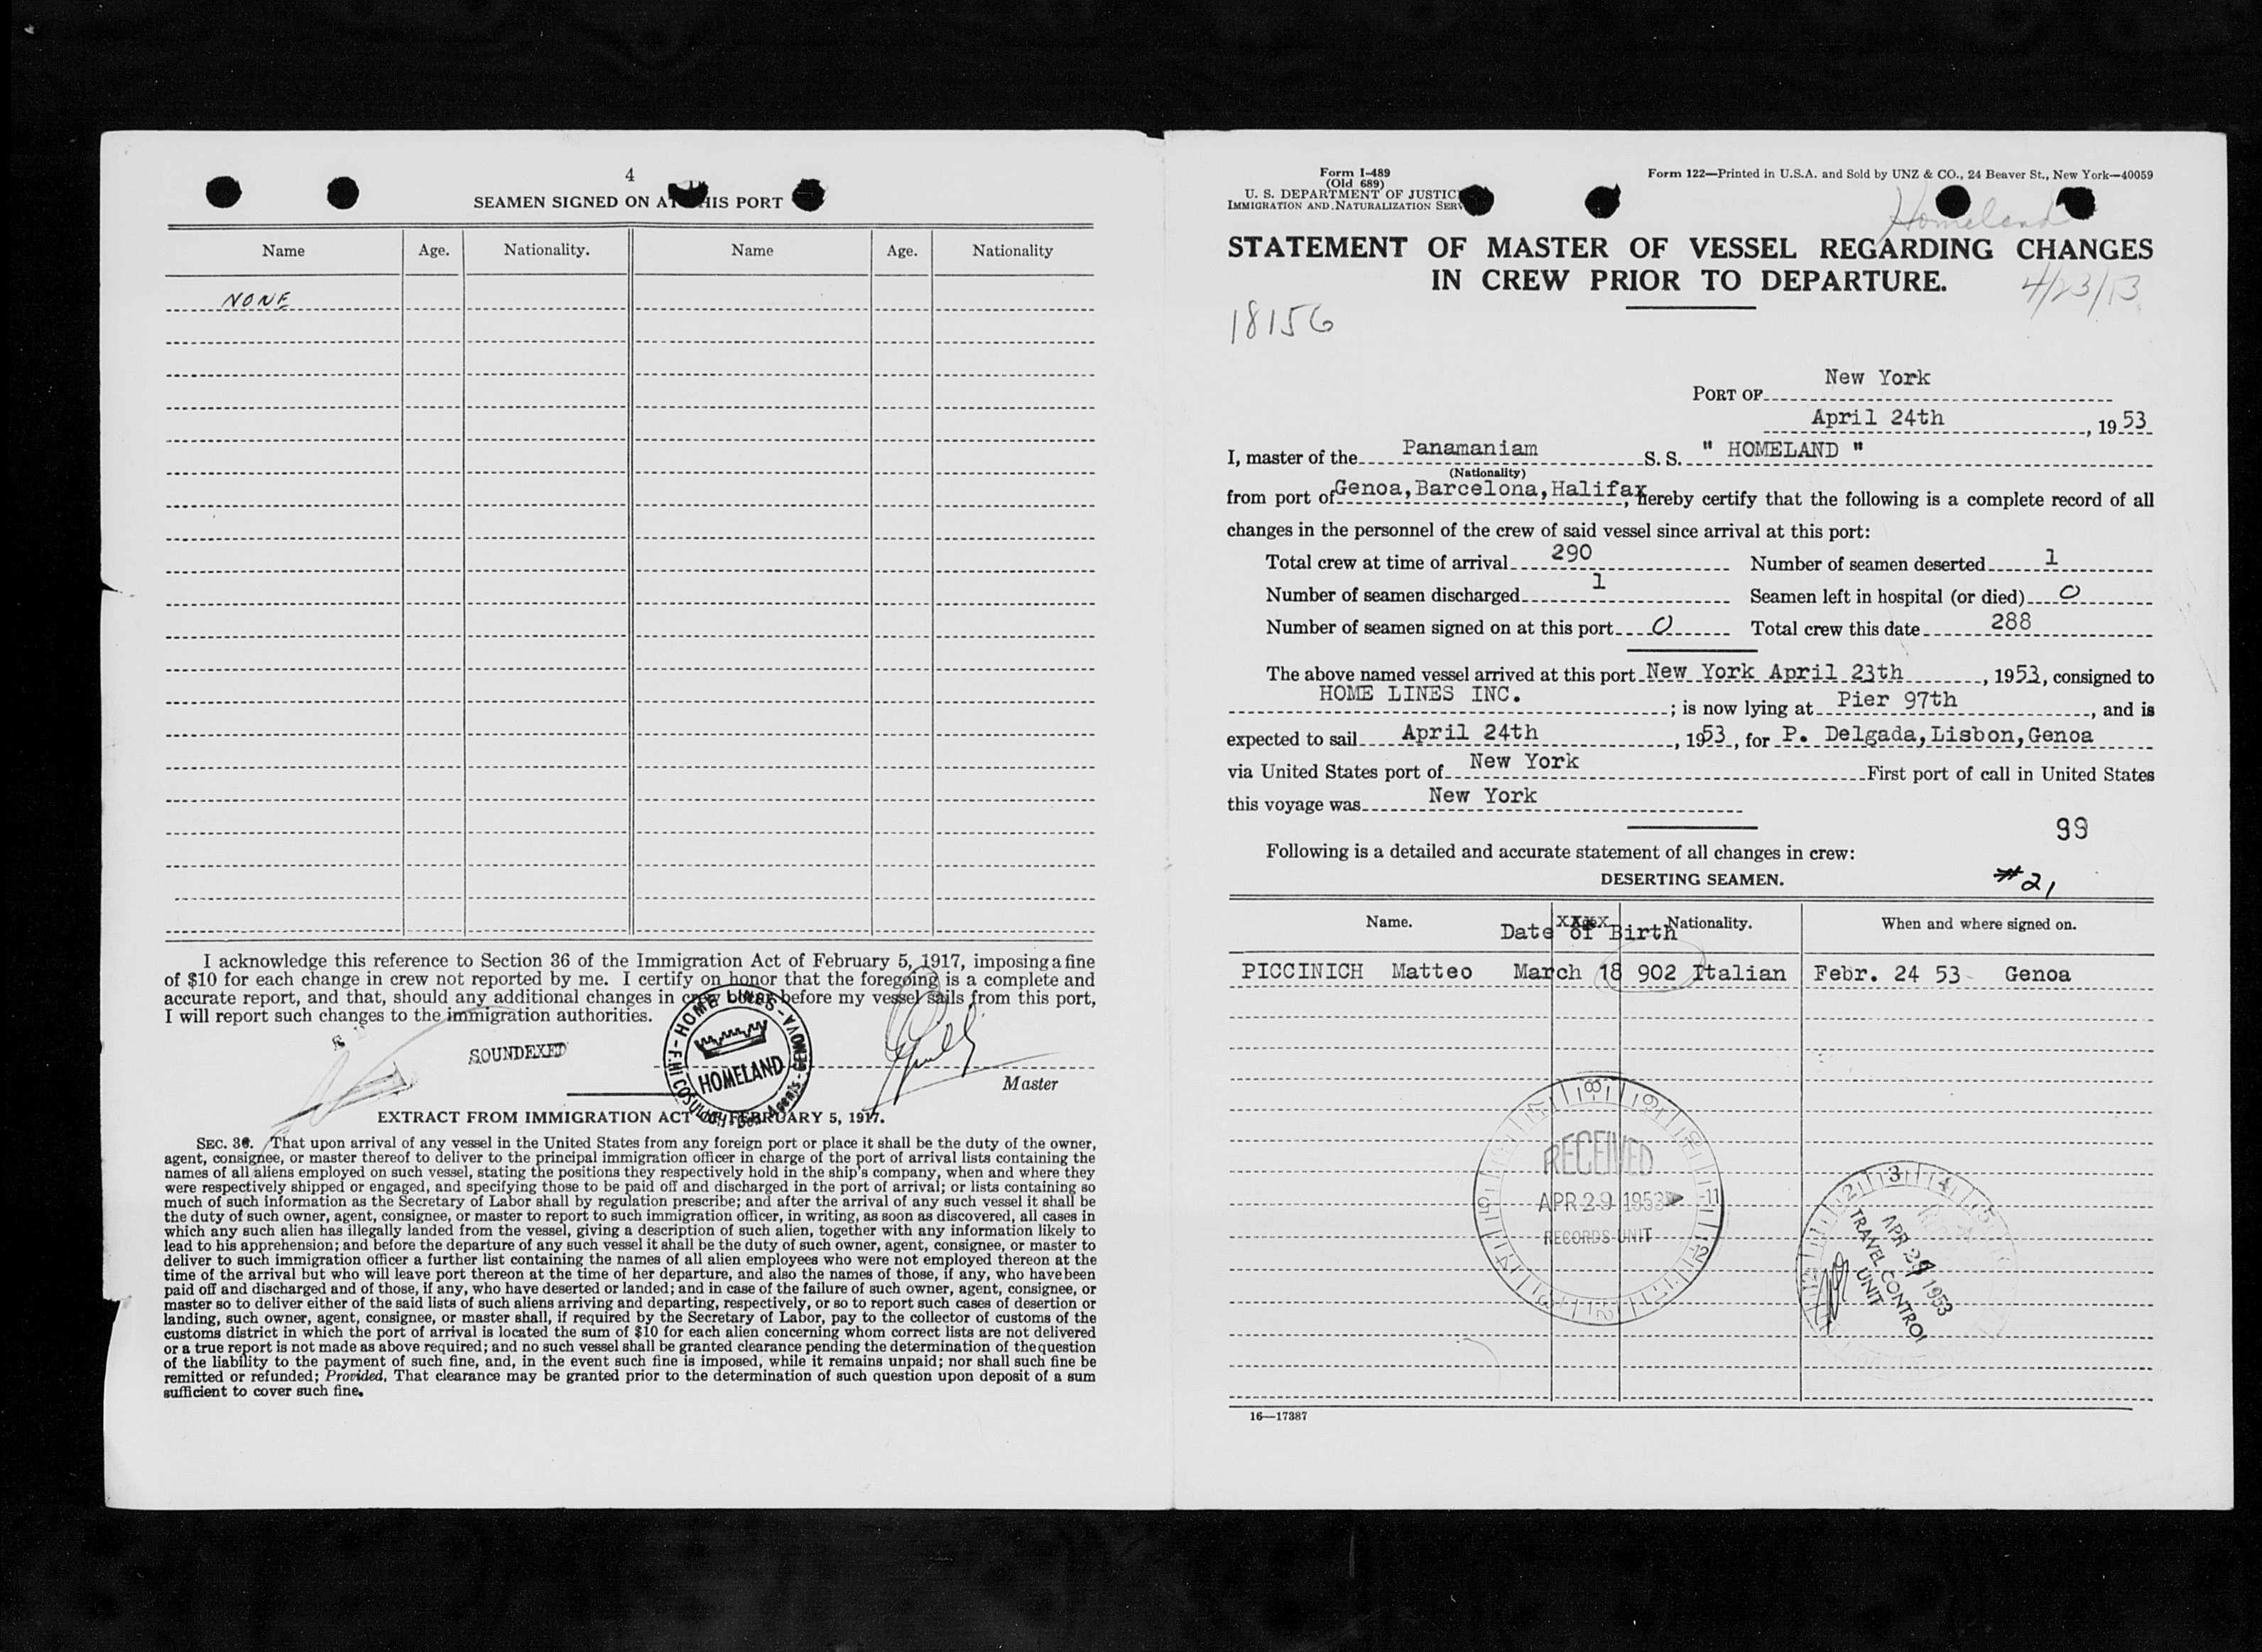 4
SEAMEN SIGNED ON AT THIS PORT
Name Age. Nationality. Name Age. Nationality
NONE
I acknowledge this reference to Section 36 of the Immigration Act of February 5, 1917, imposing a fine
of $10 for each change in crew not reported by me. I certify on honor that the foregoing is a complete and
accurate report, and that, should any additional changes in crew occur before my vessel sails from this port,
I will report such changes to the immigration authorities.
SOUNDEXED
HOME LINES - GENOVA
HOMELAND
Master
EXTRACT FROM IMMIGRATION ACT OF FEBRUARY 5, 1917.
SEC. 36. That upon arrival of any vessel in the United States from any foreign port or place it shall be the duty of the owner,
agent, consignee, or master thereof to deliver to the principal immigration officer in charge of the port of arrival lists containing the
names of all aliens employed on such vessel, stating the positions they respectively hold in the ship's company, when and where they
were respectively shipped or engaged, and specifying those to be paid off and discharged in the port of arrival; or lists containing so
much of such information as the Secretary of Labor shall by regulation prescribe; and after the arrival of any such vessel it shall be
the duty of such owner, agent, consignee, or master to report to such immigration officer, in writing, as soon as discovered, all cases in
which any such alien has illegally landed from the vessel, giving a description of such alien, together with any information likely to
lead to his apprehension; and before the departure of any such vessel it shall be the duty of such owner, agent, consignee, or master to
deliver to such immigration officer a further list containing the names of all alien employees who were not employed thereon at the
time of the arrival but who will leave port thereon at the time of her departure, and also the names of those, if any, who have been
paid off and discharged and of those, if any, who have deserted or landed; and in case of the failure of such owner, agent, consignee, or
master so to deliver either of the said lists of such aliens arriving and departing, respectively, or so to report such cases of desertion or
landing, such owner, agent, consignee, or master shall, if required by the Secretary of Labor, pay to the collector of customs of the
customs district in which the port of arrival is located the sum of $10 for each alien concerning whom correct lists are not delivered
or a true report is not made as above required; and no such vessel shall be granted clearance pending the determination of the question
of the liability to the payment of such fine, and, in the event such fine is imposed, while it remains unpaid; nor shall such fine be
remitted or refunded; Provided, That clearance may be granted prior to the determination of such question upon deposit of a sum
sufficient to cover such fine.
Form I-489
(Old 689)
U. S. DEPARTMENT OF JUSTICE
IMMIGRATION AND NATURALIZATION SERV
Form 122—Printed in U.S.A. and Sold by UNZ & CO., 24 Beaver St., New York—40059
Homeland
STATEMENT OF MASTER OF VESSEL REGARDING CHANGES
IN CREW PRIOR TO DEPARTURE.
4/23/53
18156
PORT OF New York
April 24th, 1953
I, master of the Panamaniam S. S. " HOMELAND "
(Nationality)
from port of Genoa,Barcelona,Halifax, hereby certify that the following is a complete record of all
changes in the personnel of the crew of said vessel since arrival at this port:
Total crew at time of arrival 290 Number of seamen deserted 1
Number of seamen discharged 1 Seamen left in hospital (or died) 0
Number of seamen signed on at this port 0 Total crew this date 288
The above named vessel arrived at this port New York April 23th, 1953, consigned to
HOME LINES INC.; is now lying at Pier 97th, and is
expected to sail April 24th, 1953, for P. Delgada,Lisbon,Genoa
via United States port of New York First port of call in United States
this voyage was New York
99
Following is a detailed and accurate statement of all changes in crew:
DESERTING SEAMEN.
#21
Name. Date of Birth Nationality. When and where signed on.
PICCINICH Matteo March 18 902 Italian Febr. 24 53 - Genoa
RECEIVED
APR 29 1953
RECORDS UNIT
APR 29 1953
TRAVEL CONTROL
UNIT
16—17387